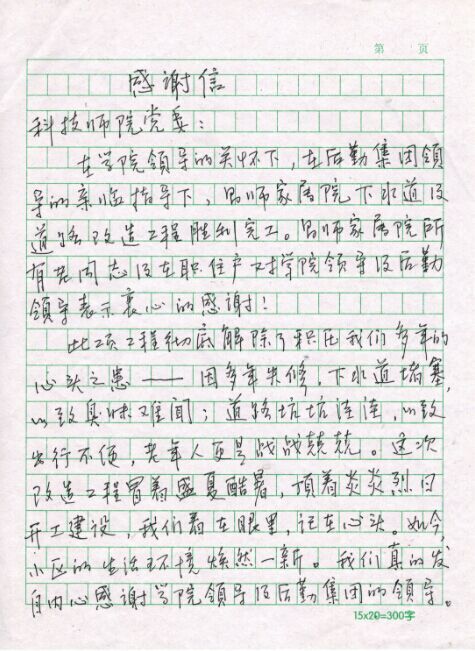 第 页
感谢信
科技师院党委：
在学院领导的关怀下，在后勤集团领
导的亲临指导下，昌师家属院下水道及
道路改造工程胜利完工。昌师家属院所
有老同志及在职住户对学院领导及后勤
领导表示衷心的感谢！
此项工程彻底解除了积压我们多年的
心头之患——因多年失修，下水道堵塞，
以致臭味难闻；道路坑坑连连，以致
出行不便，老年人更是战战兢兢。这次
改造工程冒着盛夏酷暑，顶着炎炎烈日
开工建设，我们看在眼里，记在心头。如今，
小区的生活环境焕然一新。我们真的发
自内心感谢学院领导及后勤集团的领导。
15x20=300字